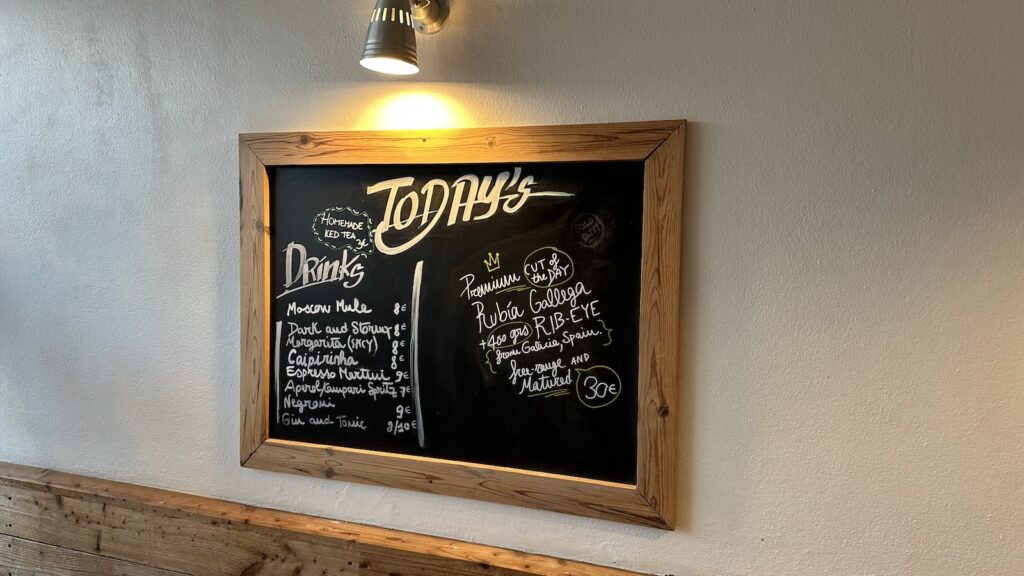 TODAY's
HOMEMADE
ICED TEA
3€
Drinks
Moscow Mule 8€
Dark and Stormy 8€
Margarita (SPICY) 8€
Caipirinha 8€
Espresso Martini 9€
Aperol/Campari Spritz 7€
Negroni 9€
Gin and Tonic 8/10€
Premium CUT of
the DAY
Rubía Gallega
+400 grs RIB-EYE
from Galicia, Spain
free-range AND
Matured 30€